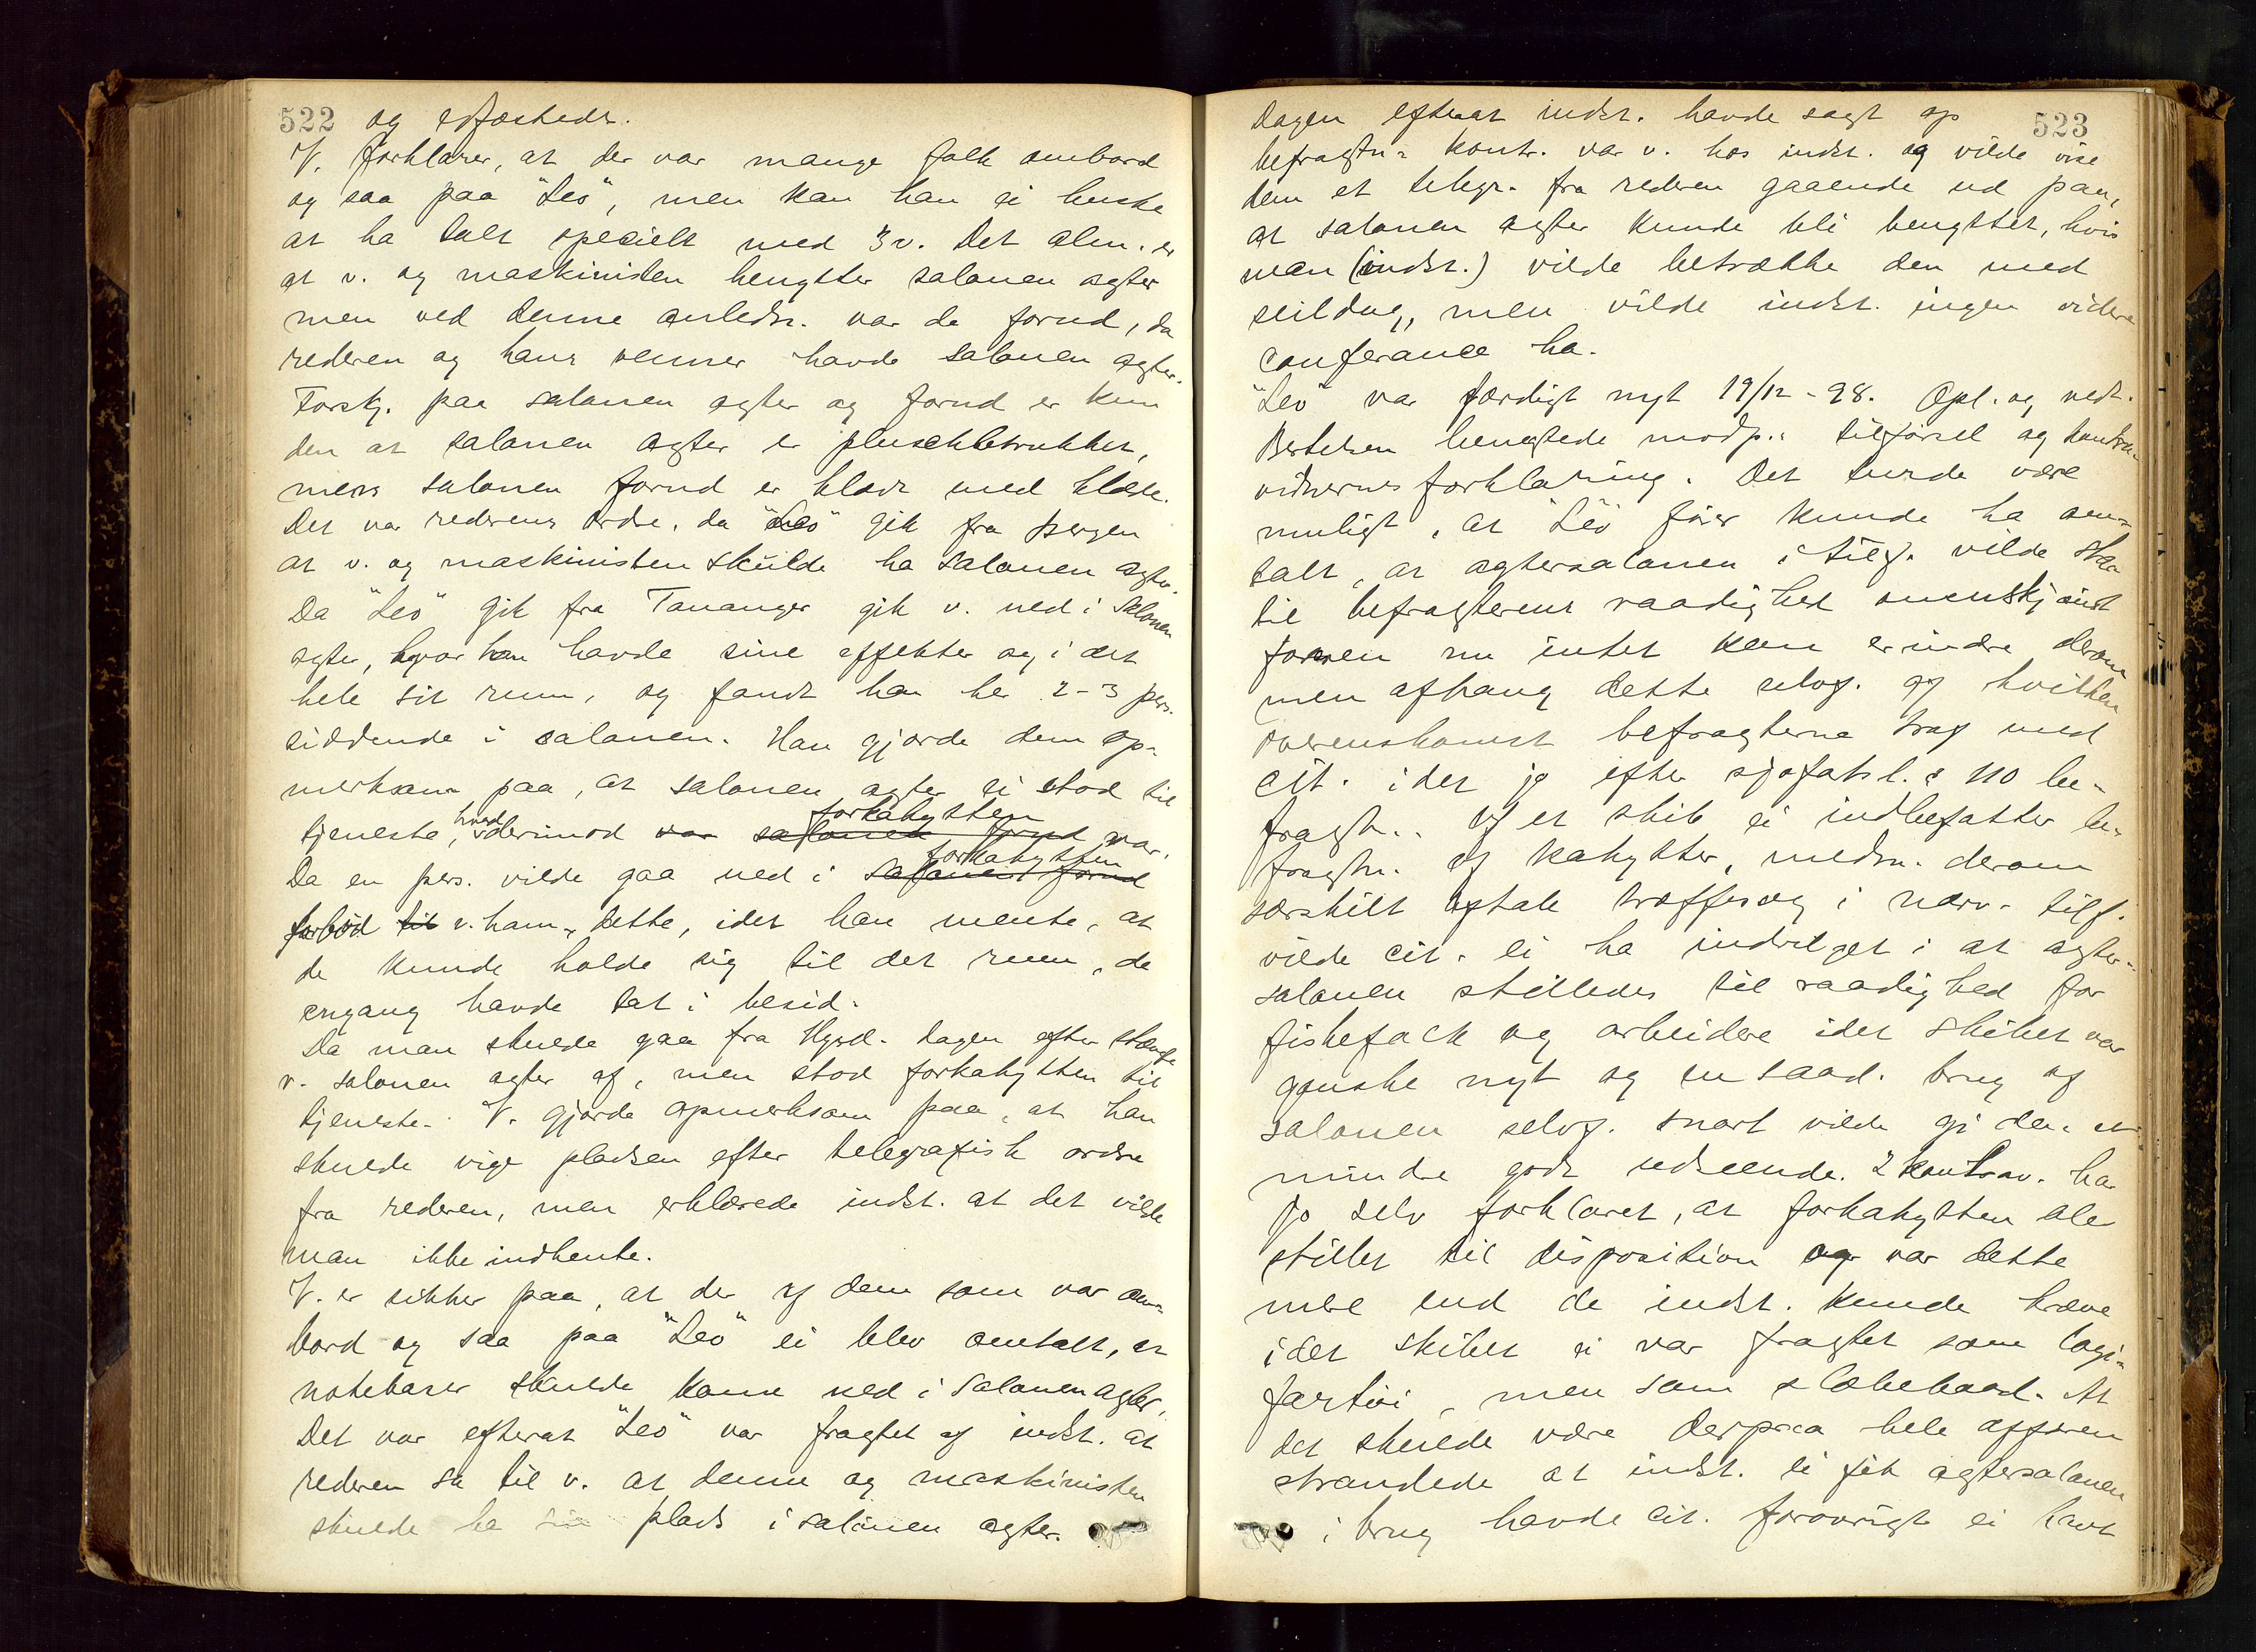 522 og edfæstedes.
V. forklarer, at der var mange folk ombord
og saa paa "Leo", men kan han ei huske
at ha talt specielt med 3 v. Det alm. er
at v. og maskinisten benytter salonen agter
men ved denne anledn. var de forud, da
rederen og hans venner havde salonen agter.
Forskj. paa salonen agter og forud er kun
den at salonen agter er pluschbetrukket,
mens salonen forud er klædt med klæde.
Det var rederens ordre, da "Leo" gik fra Bergen
at v. og maskinisten skulde ha salonen agter.
Da "Leo" gik fra Tananger gik v. ned i salonen
agter, hvor han havde sine effekter og i det
hele sit rum, og fandt han her 2-3 pers.
siddende i salonen. Han gjorde dem op-
merksam paa, at salonen agter ei stod til
tjeneste, hvad derimod var salonen forud forkahytten var.
Da en pers. vilde gaa ned i salonen forud forkahytten
forbød til v. ham dette, idet han mente, at
de kunde holde sig til det rum, de
engang havde tat i besid.
Da man skulde gaa fra Hgsd. dagen efter stængte
v. salonen agter af, men stod forkahytten til
tjeneste. V. gjorde opmerksom paa, at han
skulde vige pladsen efter telegrafisk ordre
fra rederen, men erklærede indst. at det vilde
man ikke indhente.
V. er sikker paa, at der af dem som var om-
bord og saa paa "Leo" ei blev omtalt, at
notebaser skulde komme ned i salonen agter.
Det var efterat "Leo" var fragtet af indst. at
rederen sa til v. at denne og maskinisten
skulde ha sin plads i salonen agter.
Dagen efterat indst. havde sagt op 523
befragtn. kontr. var v. hos indst. og vilde vise
dem et telegr. fra rederen gaaende ud paa,
at salonen agter kunde bli benyttet, hvis
man (indst.) vilde betrække den med
seildug, men vilde indst. ingen videre
conferance ha.
"Leo" var færdigt nyt 19/12-98. Opl. og vedt.
Bertelsen benegtede modp.s tilførsel og kontra-
vidnernes forklaring. Det turde være
muligt, at "Leo"s fører kunde ha om-
talt, at agtersalonen i tilf. vilde staa
til befragterens raadighed omenskjønt
føreren nu intet kan erindre derom
men afhang dette selvf. af hvilken
overenskomst befragterne traf med
cit. idet jo efter sjøfartsl. § 110 be-
fragtn. af et skib ei indbefatter be-
fragtn. af kahytter, medm. derom
særskilt aftale træffes og i nærv. tilf.
vilde cit. ei ha indvilget i at agter-
salonen stilledes til raadighed for
fiskefolk og arbeidere idet skibet var
ganske nyt og en saad. brug af
salonen selvf. snart vilde gi den et
mindre godt udseende. 2 kontrav. har
jo selv forklaret, at forkahytten ble
stillet til disposition og var dette
mere end de indst. kunde kræve
idet skibet ei var fragtet som logi-
fartøi, men som slæbebaad. At
det skulde være derpaa hele affæren
strandede at indst. ei fik agtersalonen
i brug havde cit. forøvrigt ei havt